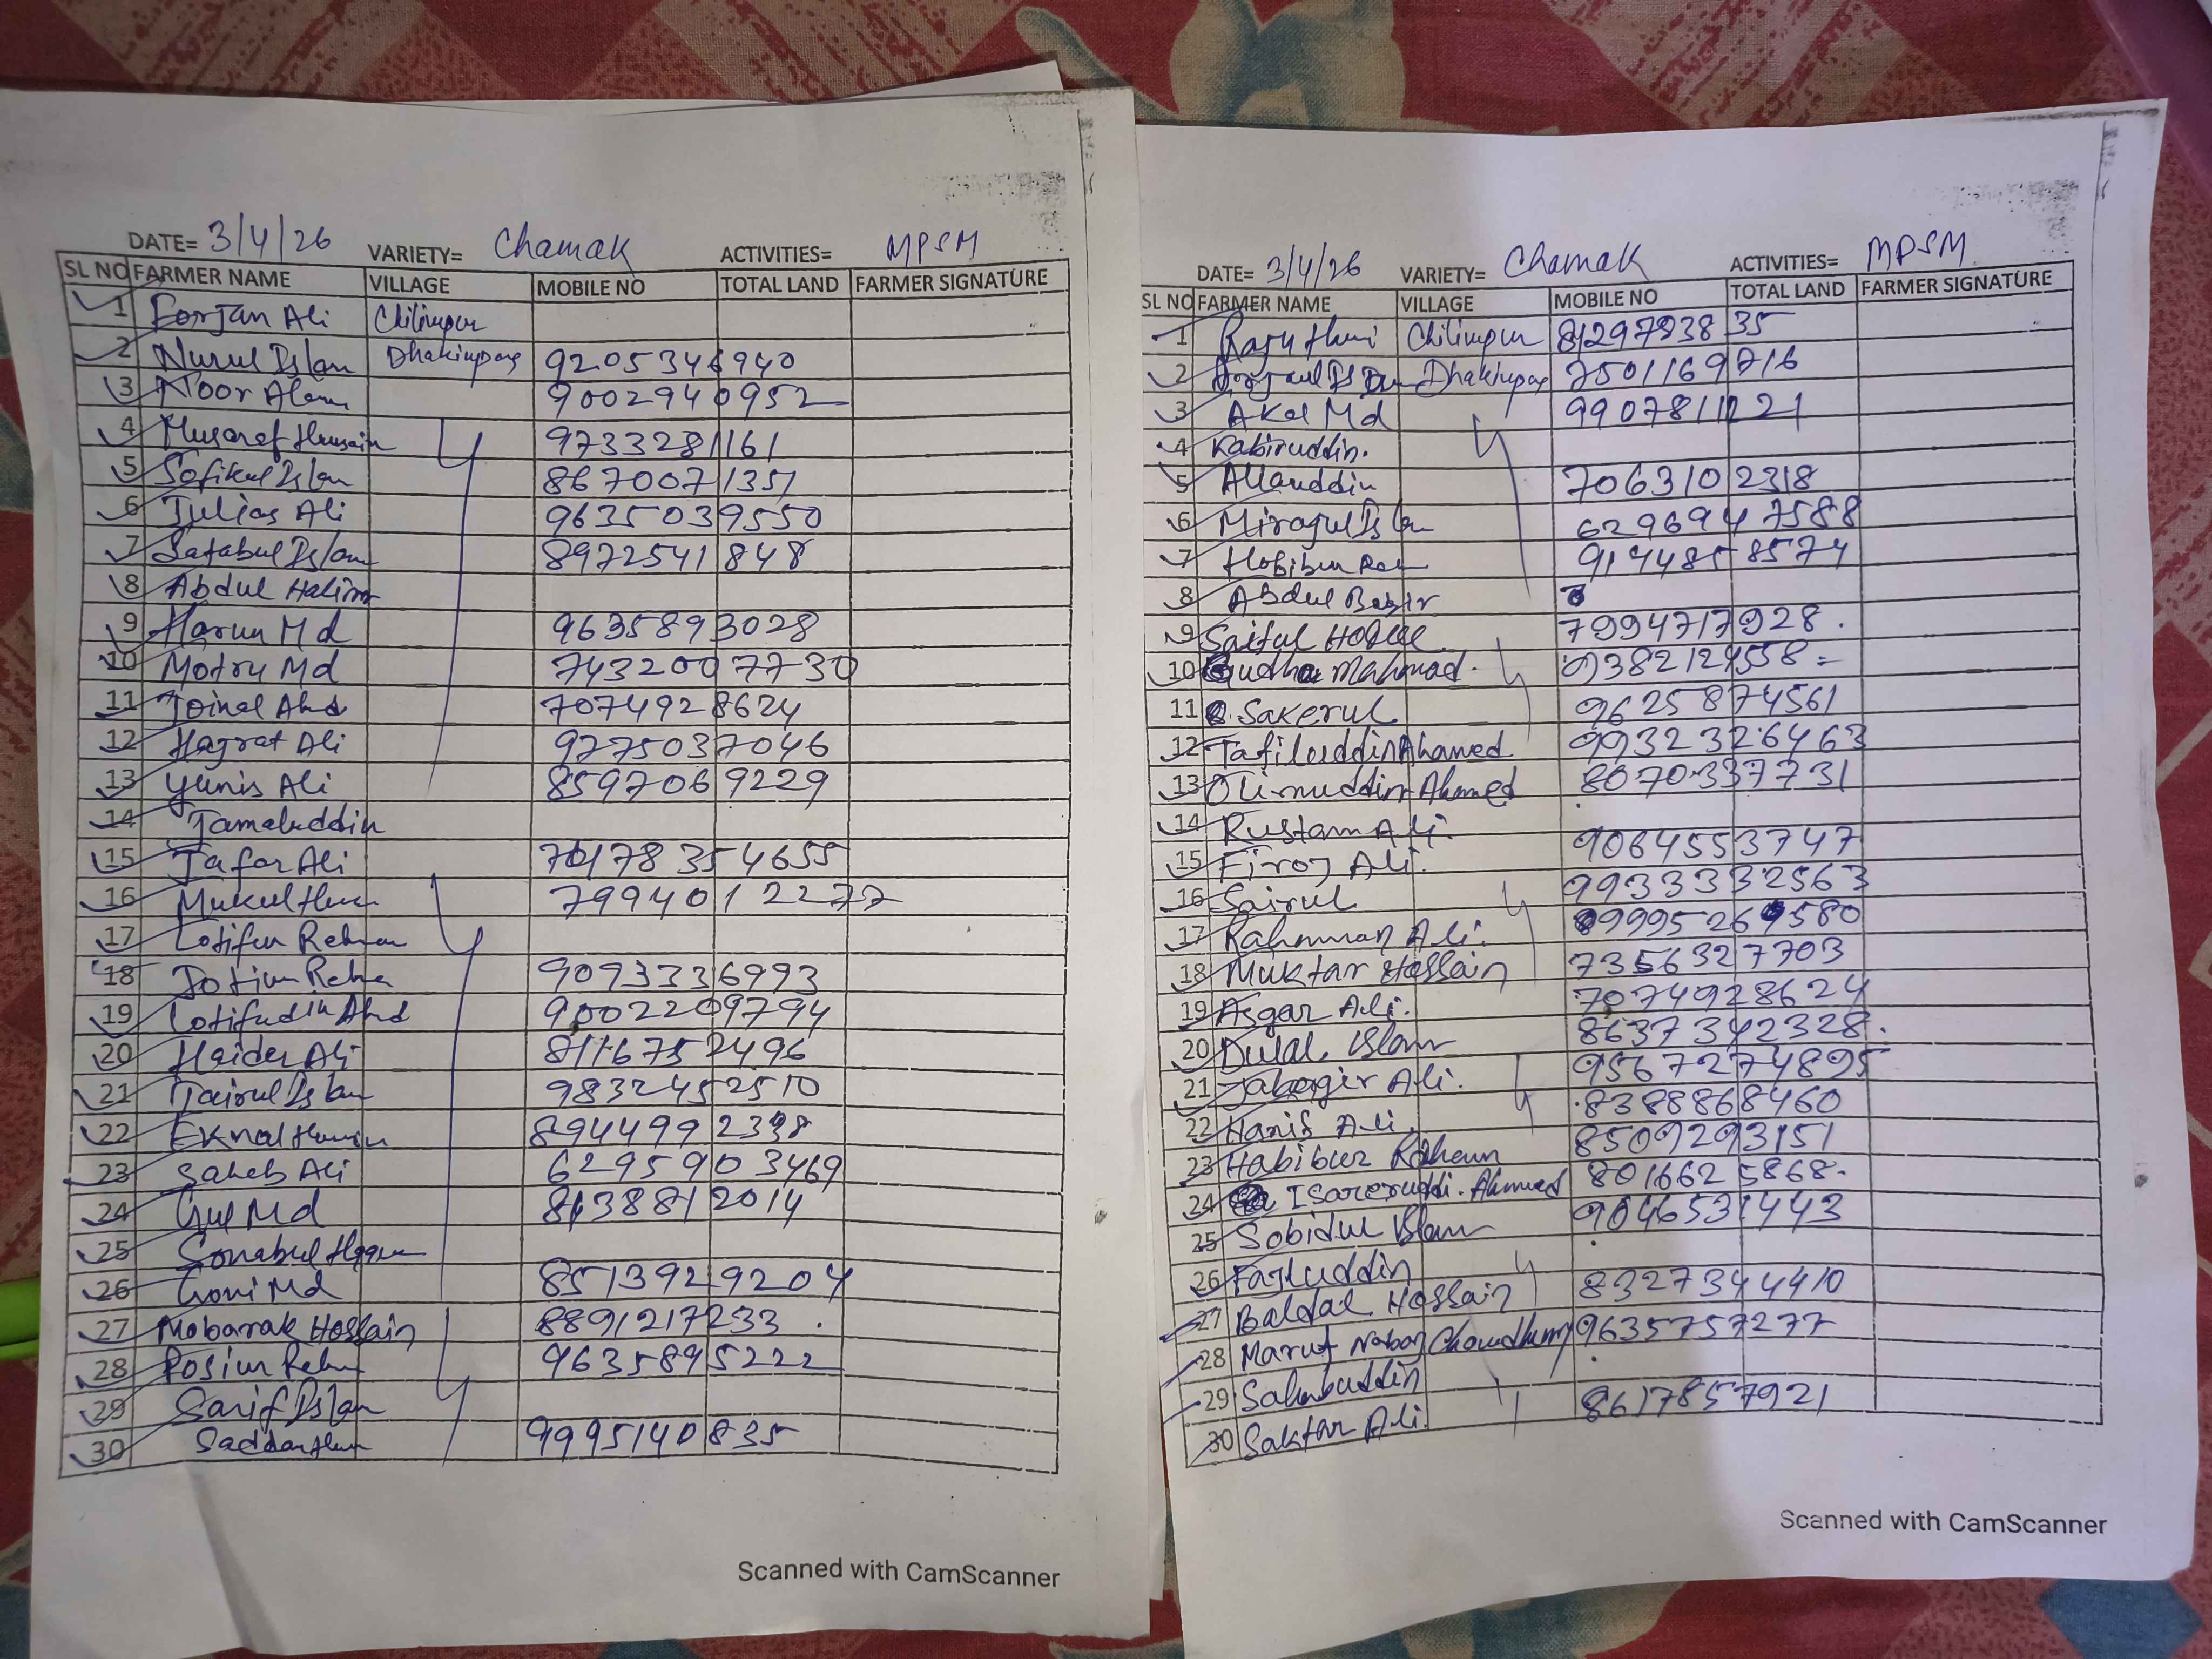 DATE= 3/4/26 VARIETY= Chamak ACTIVITIES= MPSM
SL NO FARMER NAME VILLAGE MOBILE NO TOTAL LAND FARMER SIGNATURE
1 Forjan Ali Chilimpur
2 Nurul Islam Dhakinpara 9205346940
3 Noor Alam 9002940952
4 Musaraf Hussain 9733281161
5 Sofikul Islam 8670071351
6 Julias Ali 9635039550
7 Satabul Islam 8972541848
8 Abdul Halim
9 Harun Md 9635893028
10 Motru Md 7432007730
11 Joinal Ahd 7074928624
12 Hajrat Ali 9775037046
13 Yunis Ali 8597069229
14 Jamaluddin
15 Jafar Ali 54655
16 Mukul 7994012277
17 Lotifur Rehman
18 Rehman 9093336993
19 Lotifudin Ahd 9002209794
20 Haider Ali 8116752496
21 Tairul Islam 9832452510
22 Eknal 8944992398
23 Saheb Ali 6295903469
24 Gul Md 8138812014
25 Sonabul
26 Goni Md 8513929204
27 Mobarak Hossain 8891217233
28 Posiur Rehman 9635895222
29 Sarif Islam
30 Saddam 9995140835
Scanned with CamScanner
DATE= 3/4/26 VARIETY= Chamak ACTIVITIES= MPSM
SL NO FARMER NAME VILLAGE MOBILE NO TOTAL LAND FARMER SIGNATURE
1 Raju Chilimpur 8129793835
2 Dhakinpara 7501169716
3 Akal Md 9907811221
4 Kabiruddin.
5 Allauddin 7063102318
6 Mirajul Islam 6296947588
7 Hobibur 9144858574
8 Abdul Basir
9 Saiful Hoque 7994717928.
10 Mahmad. 9382124558
11 Sakerul 9625874561
12 Tafiluddin Ahamed 9932326463
13 Olimuddin Ahamed 8070337731
14 Rustam Ali.
15 Firoj Ali. 9064553747
16 Sairul 9933332563
17 Rahaman Ali. 580
18 Muktar Hossain 7356327703
19 Asgar Ali. 7074928624
20 Dulal Islam 8637342328.
21 Jahagir Ali. 9567274895
22 Hanif Ali. 8388868460
23 Habibur Raheman 8509293151
24 Ahmed 8016625868.
25 Sobidul Islam 9046531443
26 Fajluddin
27 Baldal Hossain 8327344410
28 Maruf Chowdhury 9635757277
29 Sahabuddin
30 Saktar Ali. 8617857921
Scanned with CamScanner